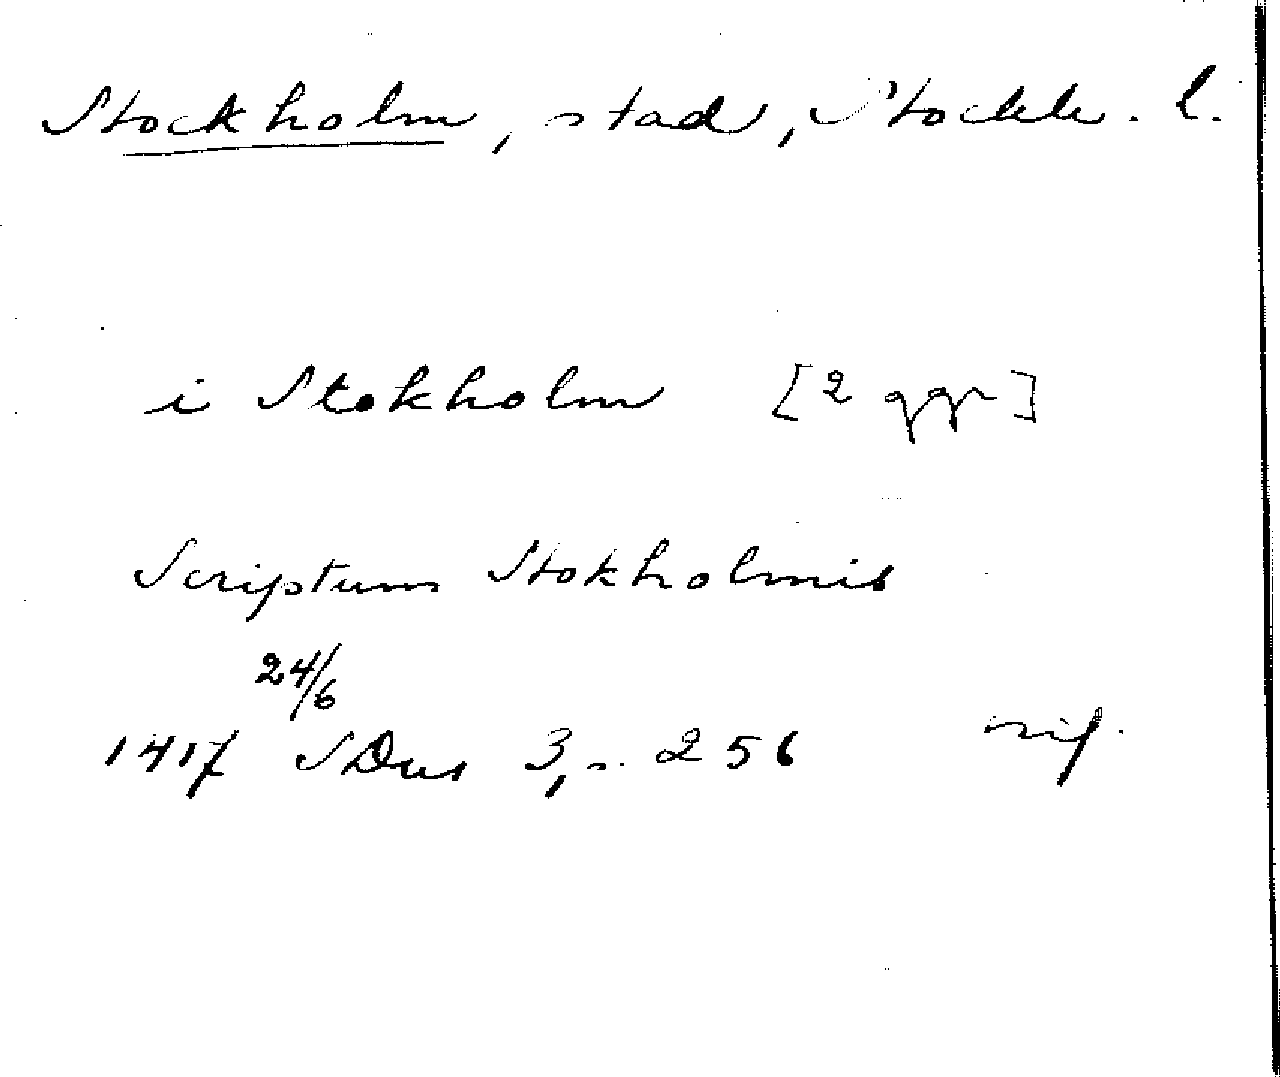 Stockholm, stad, Stockh. l.
i Stokholm [2 ggr]
Scriptum Stokholmis
24/6
1417 SDns 3, s. 256